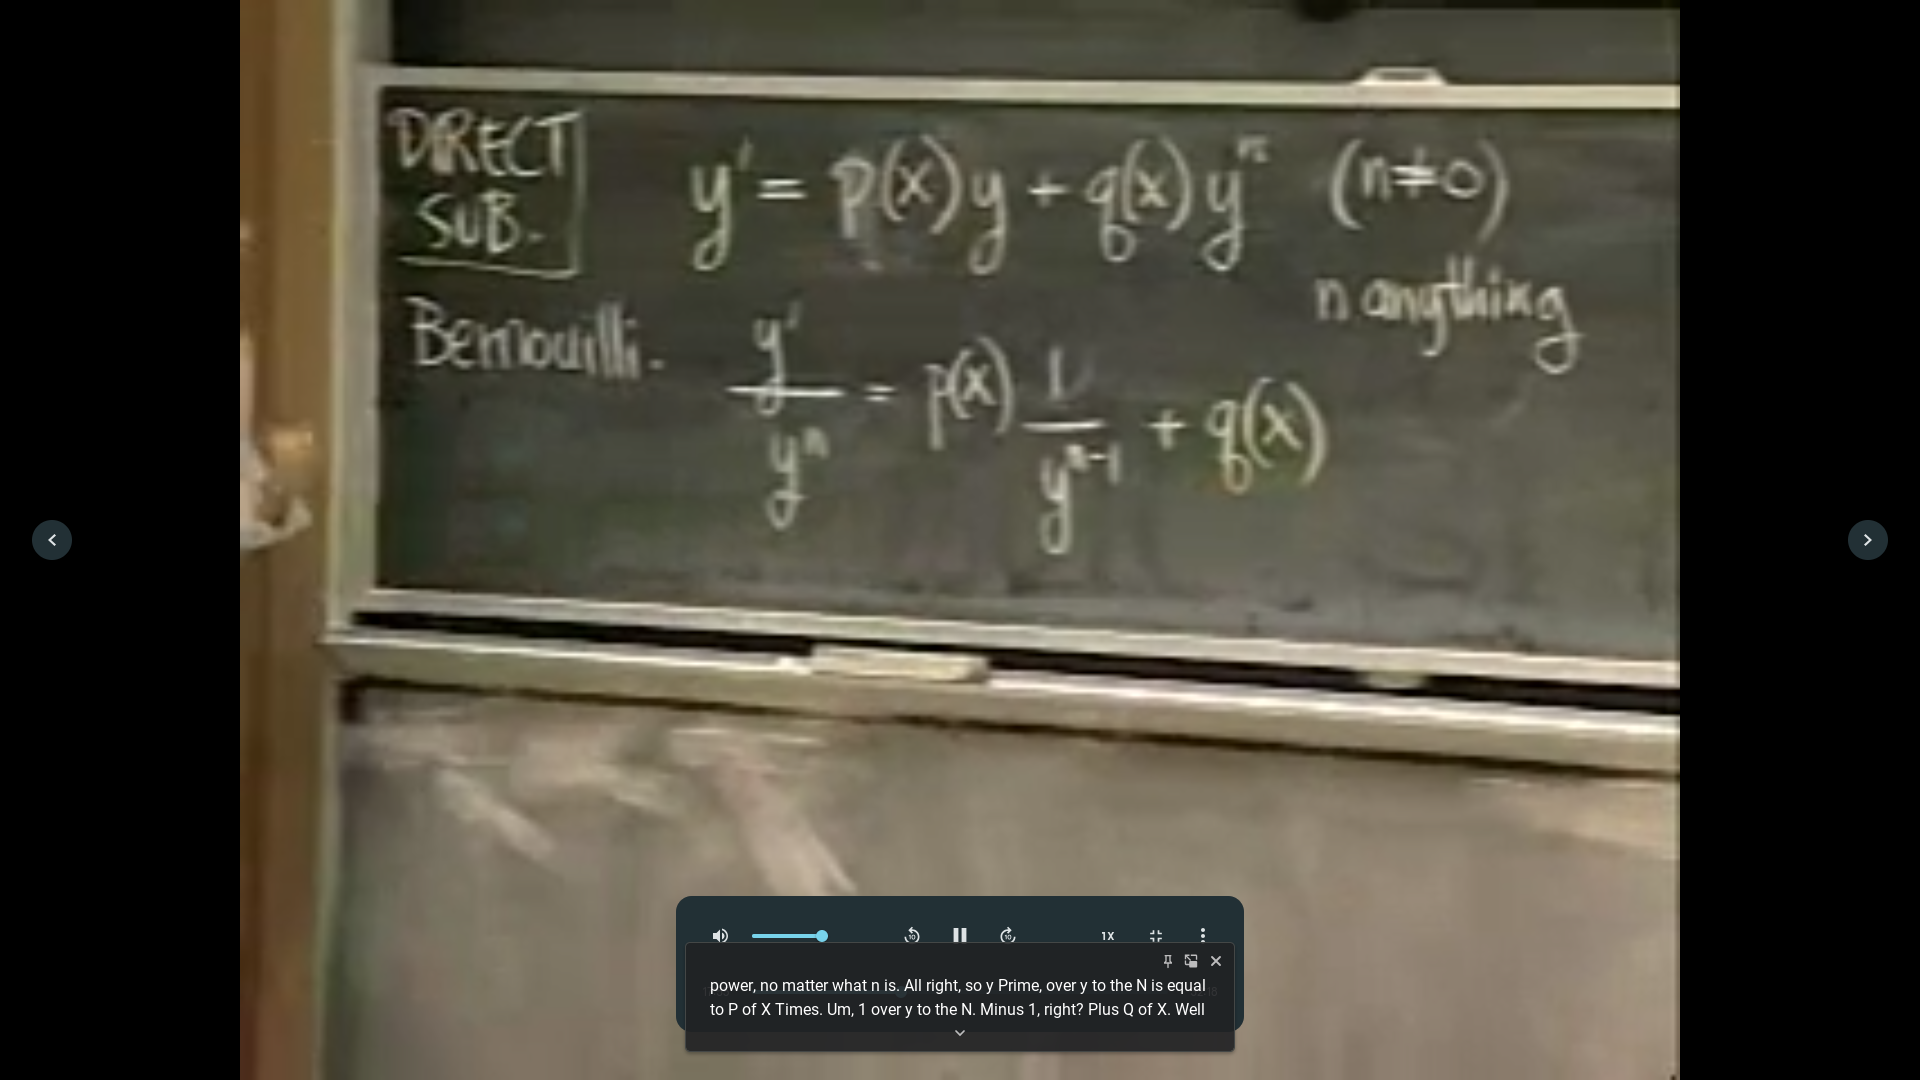 DIRECT
SUB.
y' = p(x)y + q(x)yⁿ (n≠0)
n anything
Bernouilli.
y'/yⁿ = p(x) 1/yⁿ⁻¹ + q(x)
10
10
1X
power, no matter what n is. All right, so y Prime, over y to the N is equal
to P of X Times. Um, 1 over y to the N. Minus 1, right? Plus Q of X. Well